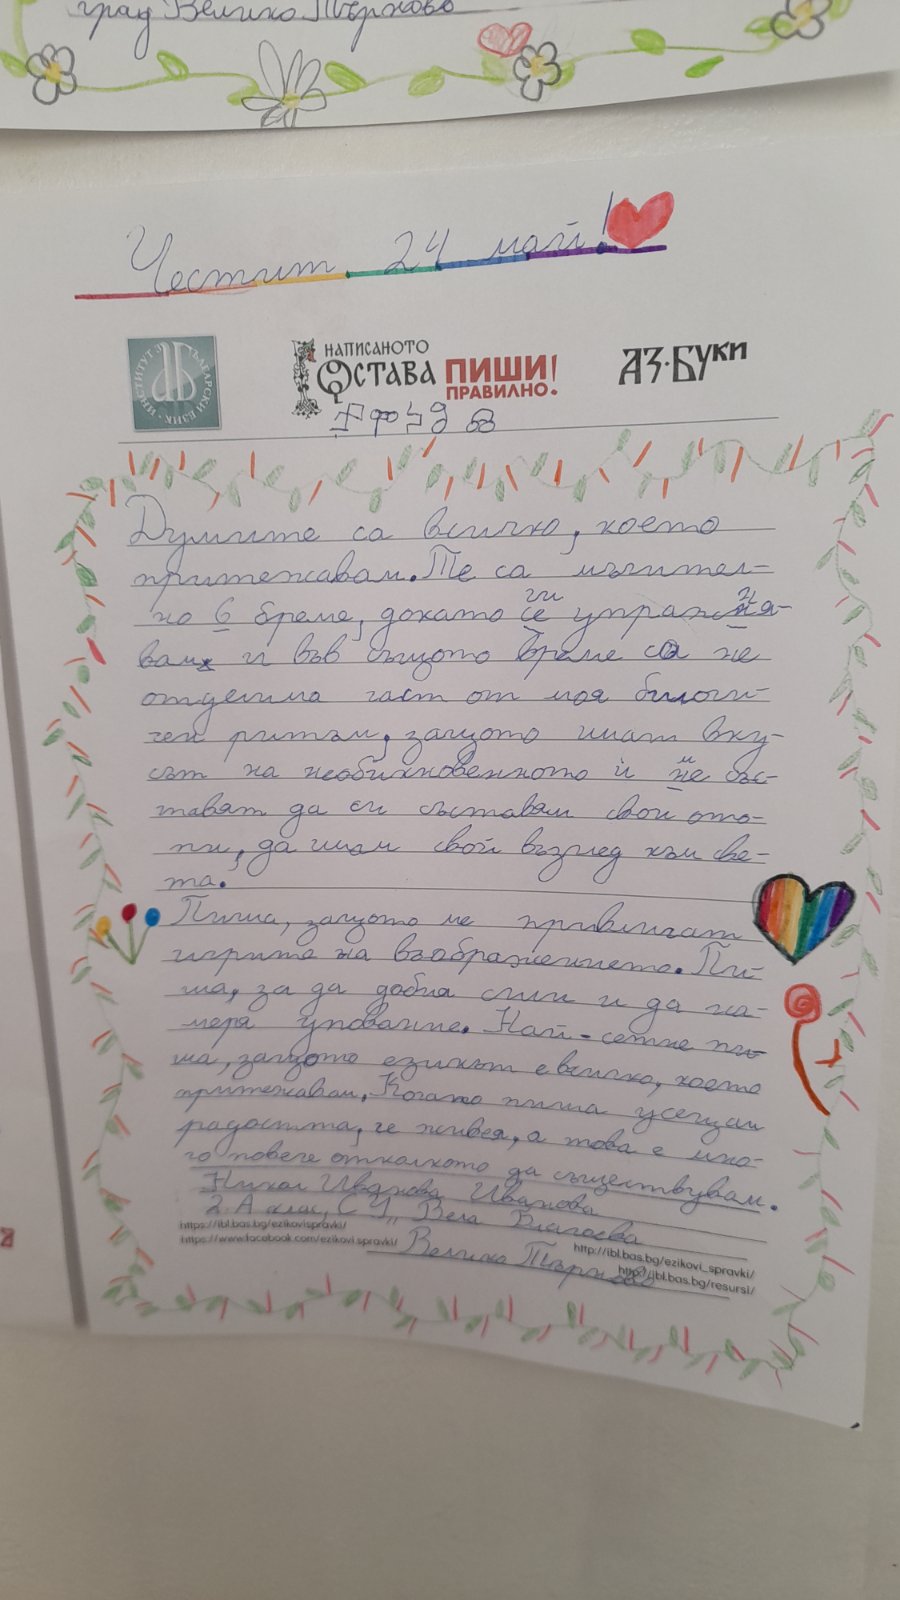 град Велико Търново
Честит 24 май!
ИНСТИТУТ ЗА БЪЛГАРСКИ ЕЗИК
НАПИСАНОТО
ОСТАВА
ПИШИ!
ПРАВИЛНО!
АЗ·БУКИ
Думите са всичко, което
притежавам. Те са мъчител-
но в бреме, докато се ги упражня-
вам и във същото време са не
отделима част от моя биологи-
чен ритъм, защото имат вку-
сът на необикновенното и ме със-
тавят да си съставям свои опо-
ри, да имам свой възглед към све-
та.
Пиша, защото ме привличат
игрите на въображението. Пи-
ша, за да добия сили и да на-
меря упование. Най-сетне пи-
ша, защото езикът е всичко, което
притежавам. Когато пиша усещам
радостта, че живея, а това е мно-
го повече отколкото да съществувам.
Никол Иванова Иванова
2 А клас, СУ „Вела Благоева
Велико Търново
https://ibl.bas.bg/ezikovispravki/
https://www.facebook.com/ezikovi.spravki/
http://ibl.bas.bg/ezikovi_spravki/
http://ibl.bas.bg/resursi/